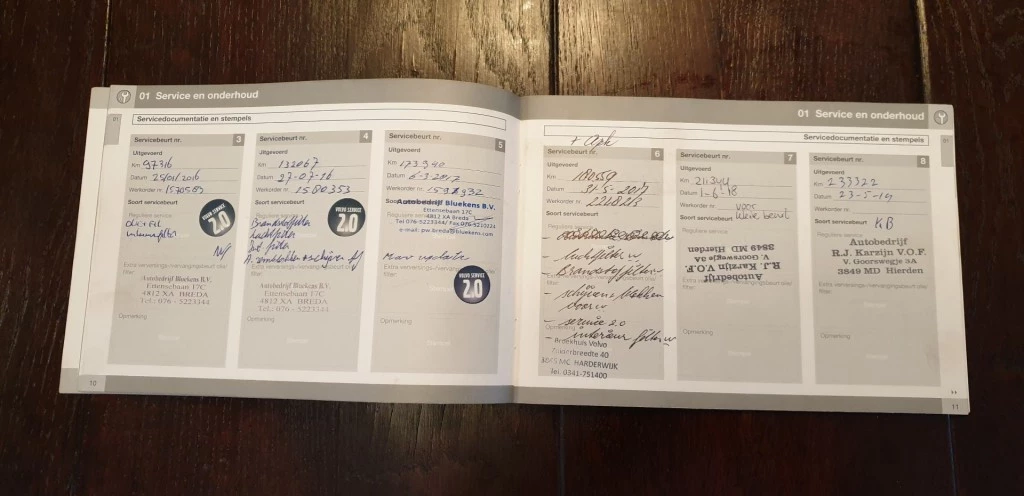 01 Service en onderhoud
01
Servicedocumentatie en stempels
Servicebeurt nr. 3
Uitgevoerd
Km 97316
Datum 25/01/2016
Werkorder nr. 1570583
Soort servicebeurt
Reguliere service
VOLVO SERVICE
2.0
olie + fil
interieurfilter
Extra verversings-/vervangingsbeurt olie/
filter:
Autobedrijf Bluekens B.V.
Ettensebaan 17C
4812 XA BREDA
Tel.: 076 - 5223344
Opmerking
Stempel
10
Servicebeurt nr. 4
Uitgevoerd
Km 132067
Datum 27-07-16
Werkorder nr. 1580353
Soort servicebeurt
VOLVO SERVICE
2.0
Brandstoffilter
Luchtfilter
Int filter
A. remblokken + schijven
Extra verversings-/vervangingsbeurt olie/
filter:
Autobedrijf Bluekens B.V.
Ettensebaan 17C
4812 XA BREDA
Tel.: 076 - 5223344
Opmerking
Stempel
Servicebeurt nr. 5
Uitgevoerd
Km 173940
Datum 6-3-2017
Werkorder nr.
Autobedrijf Bluekens B.V.
Soort servicebeurt
Ettensebaan 17C
4812 XA Breda
Reguliere service
Tel 076-5223344 / Fax 076-5210221
e-mail: pw.breda@bluekens.com
Extra verversings-/vervangingsbeurt olie/
filter:
update
VOLVO SERVICE
2.0
Opmerking
Stempel
01 Service en onderhoud
01
Servicedocumentatie en stempels
+ Apk
Servicebeurt nr. 6
Uitgevoerd
Km 180559
Datum 31-5-2017
Werkorder nr.
Soort servicebeurt
Reguliere service
- luchtfilter
- Brandstoffilter
Extra verversings-/vervangingsbeurt olie/
filter:
- schijven + blokken
- service 2.0
Opmerking
- interieur filter
Broekhuis Volvo
Zuiderbreedte 40
3845 MC HARDERWIJK
Tel. 0341-751400
Servicebeurt nr. 7
Uitgevoerd
Km 211344
Datum 1-6-18
Werkorder nr. voor
Soort servicebeurt kleine beurt
Reguliere service
Autobedrijf
R.J. Karzijn V.O.F.
V. Goorswegje 3A
3849 MD Hierden
Extra verversings-/vervangingsbeurt olie/
filter:
Opmerking
Stempel
Servicebeurt nr. 8
Uitgevoerd
Km 233322
Datum 23-5-19
Werkorder nr.
Soort servicebeurt KB
Reguliere service
Autobedrijf
R.J. Karzijn V.O.F.
V. Goorswegje 3A
3849 MD Hierden
Extra verversings-/vervangingsbeurt olie/
filter:
Opmerking
Stempel
11